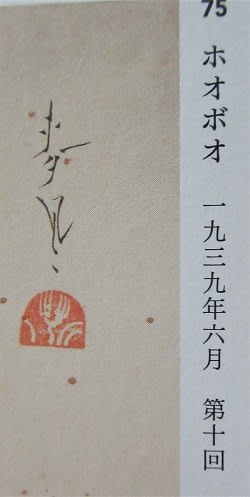 75
ホオボオ 一九三九年六月 第十回